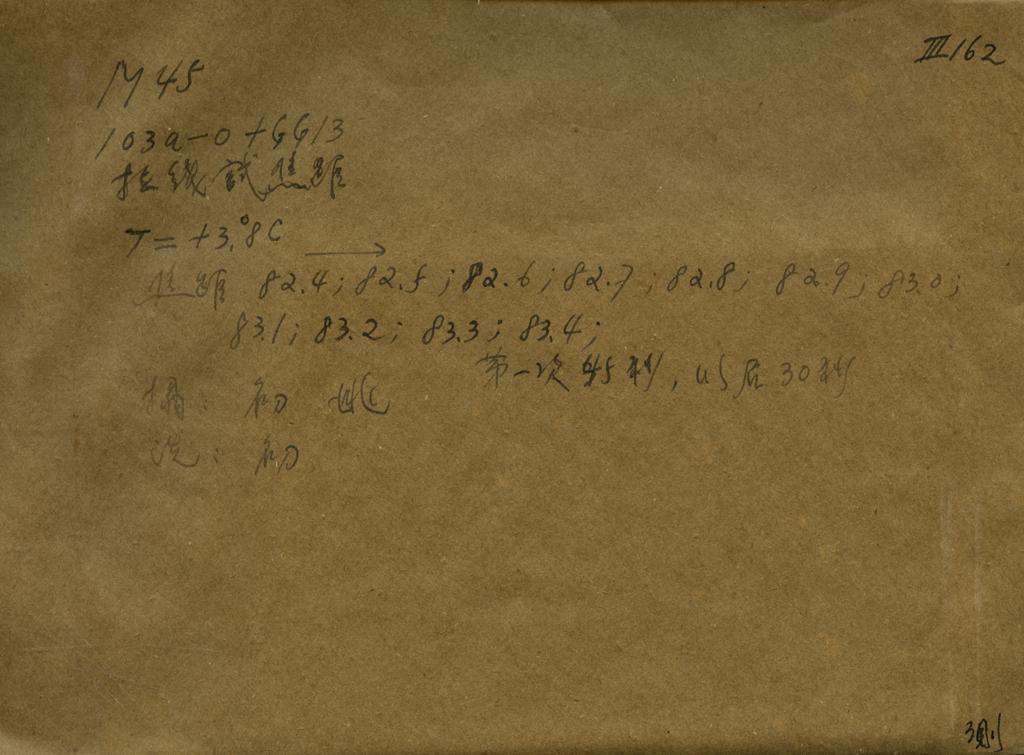 III162
M45
103a-O+GG13
拉线試焦距
T=+3.°8C →
焦距 82.4; 82.5; 82.6; 82.7; 82.8; 82.9; 83.0;
83.1; 83.2; 83.3; 83.4;
第一次45秒, 以后30秒
初
洗: 初
測